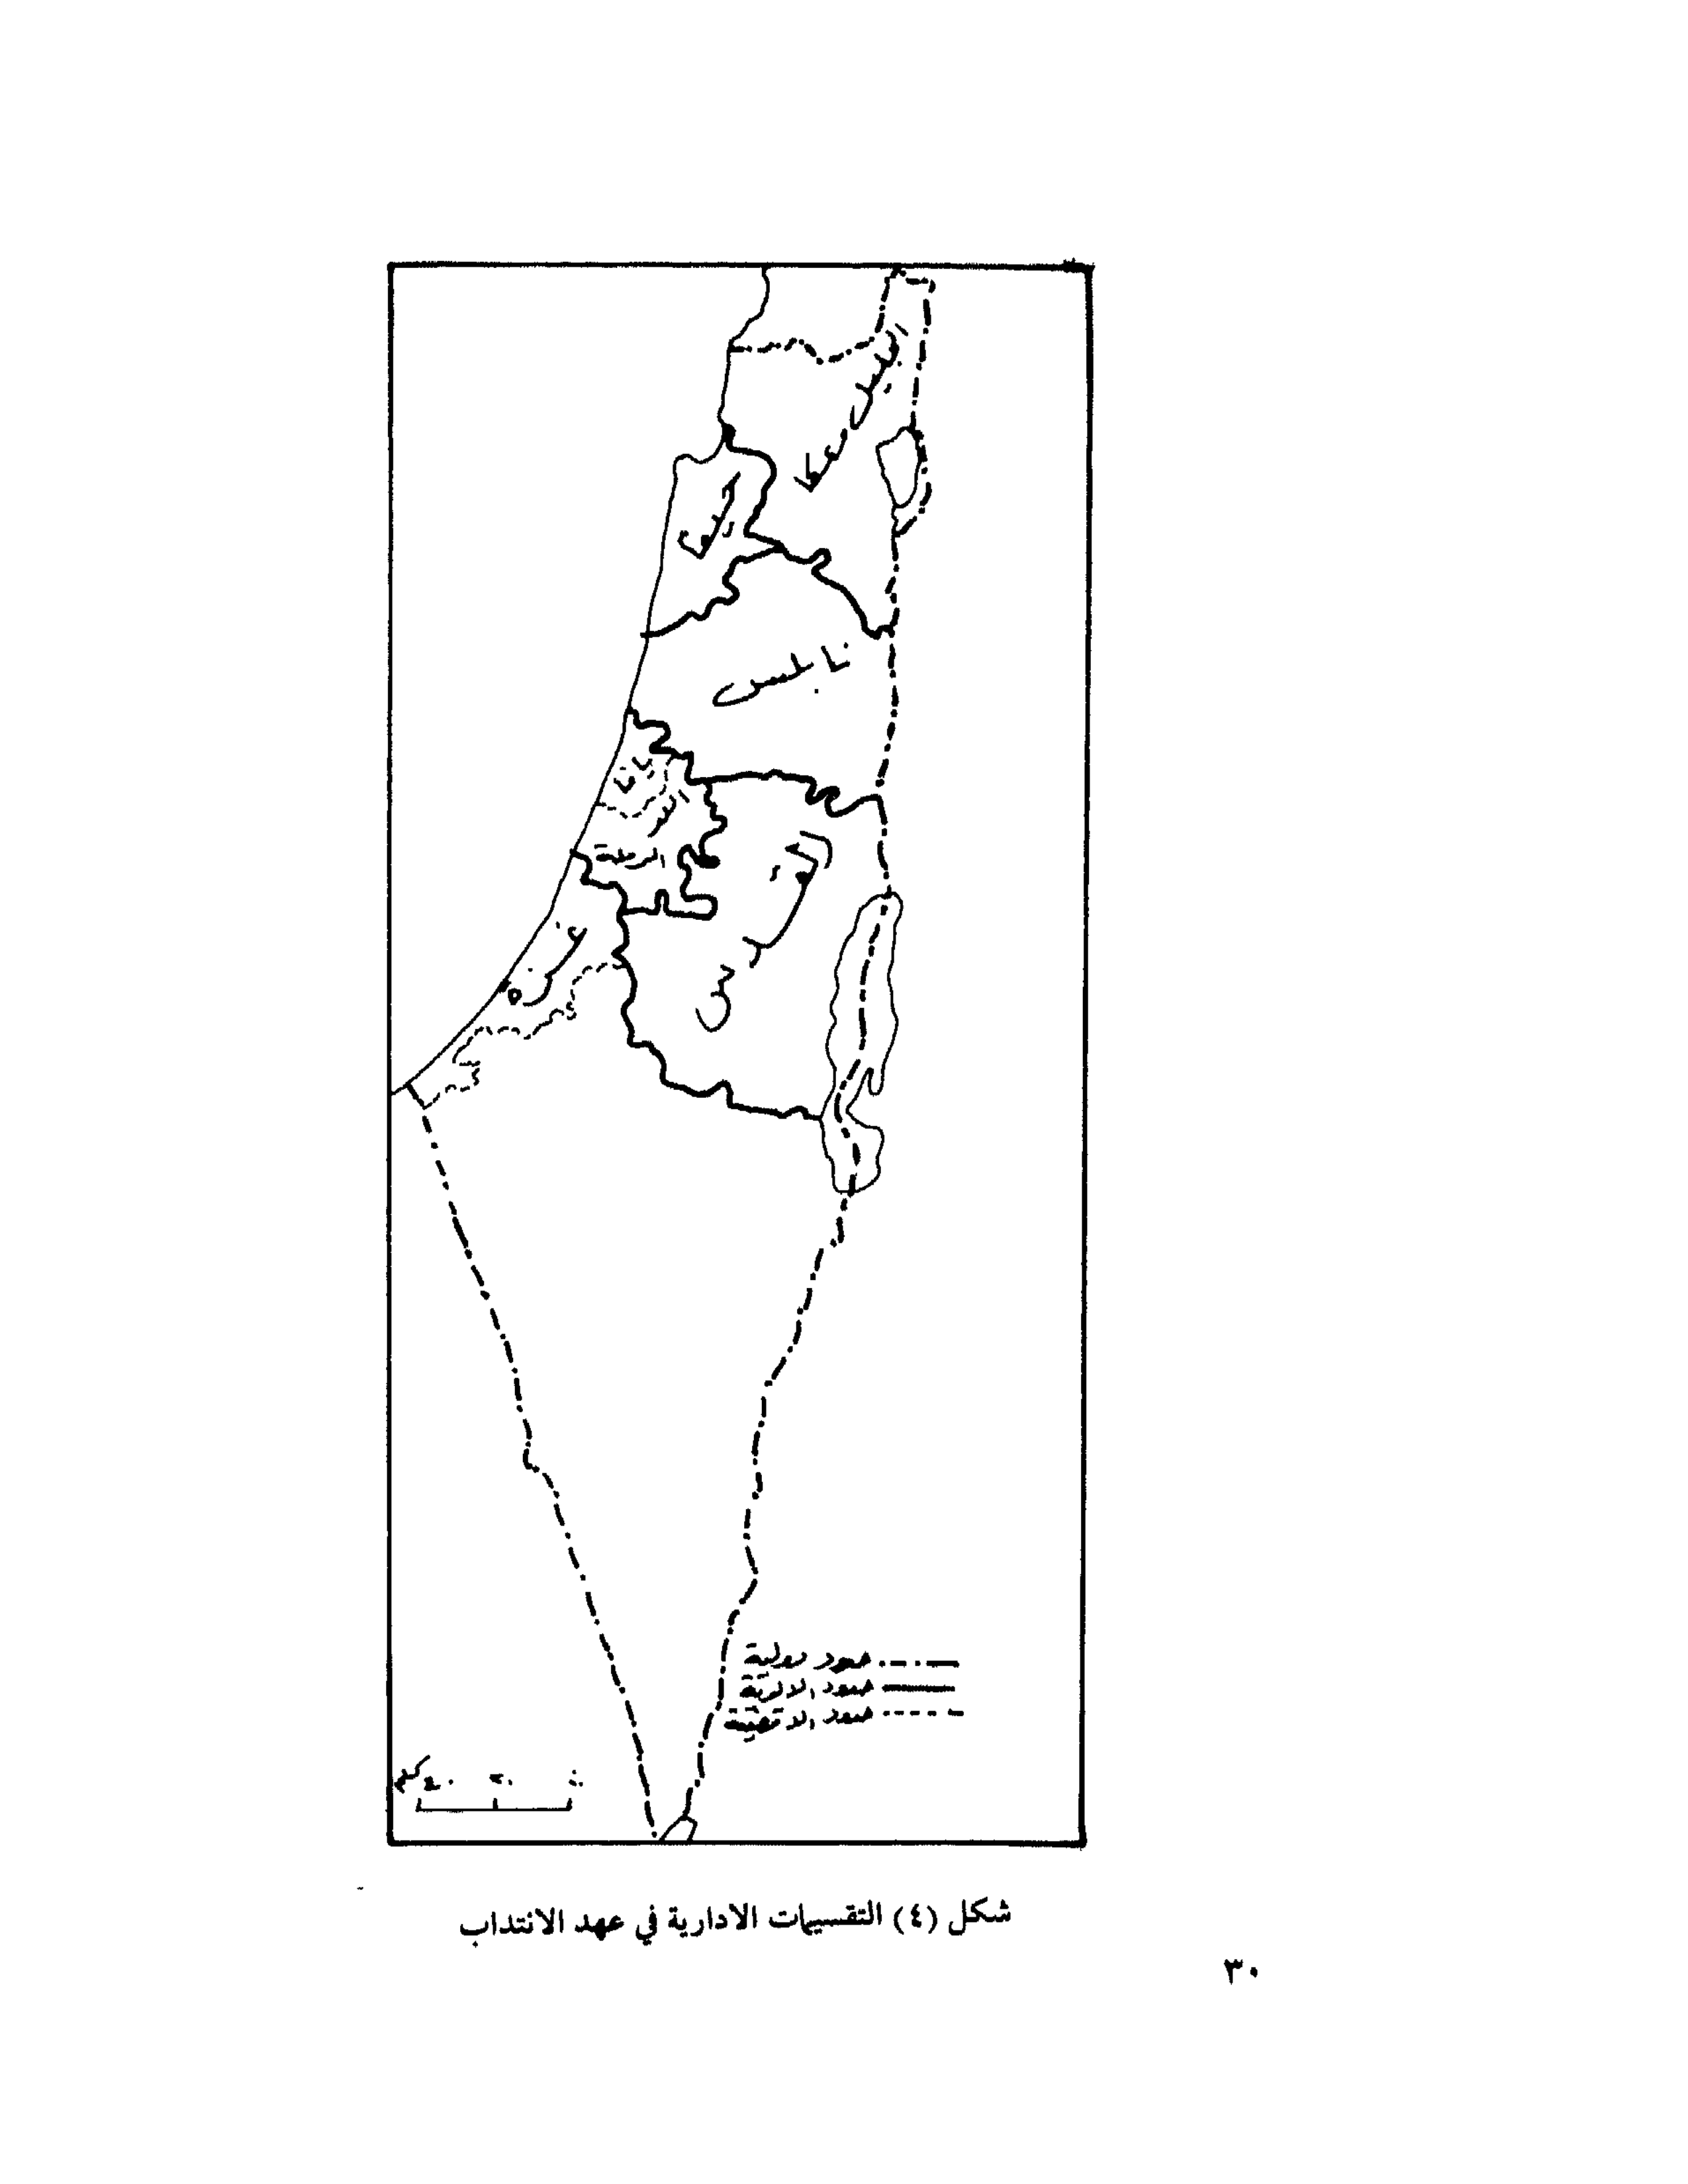 نابلس
الرملة
القدس
غزة
حدود دولية
حدود الالوية
حدود الاقضية
٤٠ كم
شكل (٤) التقسيمات الادارية في عهد الانتداب
٣٠